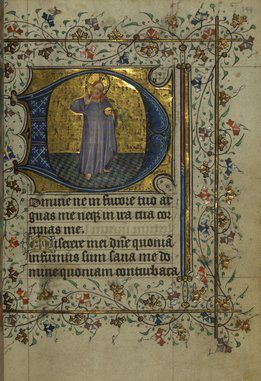 Domine ne in furore tuo ar
guas me neqꝫ in ira tua cor
ripias me.
Miserere mei dñe quoniã
infirmus sum sana me do
mine quoniam conturbata